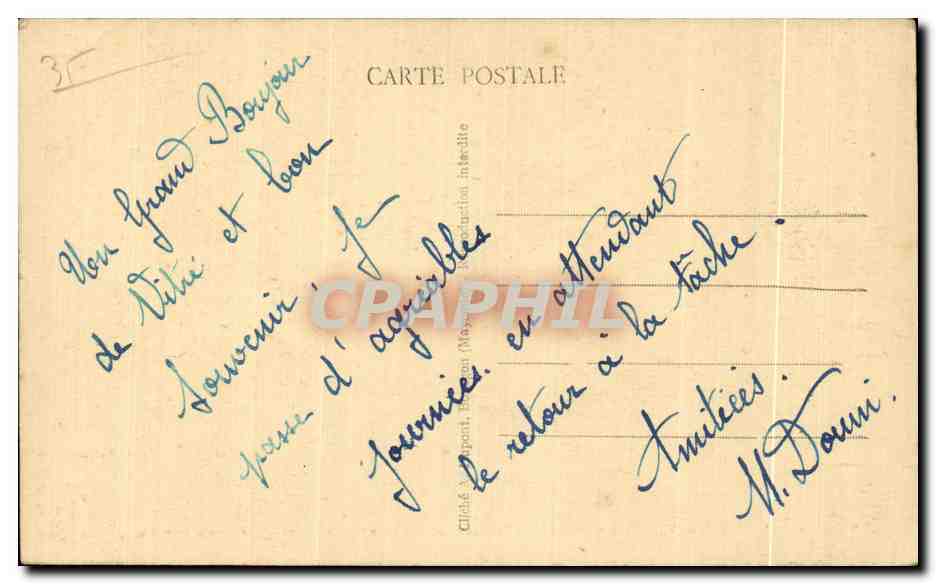 35
CARTE POSTALE
Un Grand Bonjour
de Vitré et bon
Souvenir. Je
passe d'agréables
journées. en attendant
le retour à la tâche.
Amitiées.
M.
Cliché A. Dupont, (May interdite
CPAPHIL